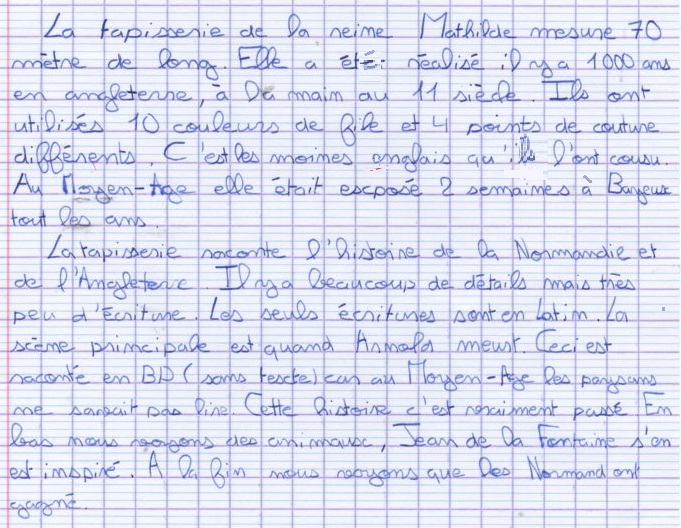 La tapisserie de la reine Mathilde mesure 70
mètre de long. Elle a été réalisé il y a 1000 ans
en angleterre, à la main au 11 siècle. Ils ont
utilisés 10 couleurs de file et 4 points de couture
différents. C'est les moines anglais qu'ils l'ont cousu.
Au Moyen-Age elle était exposé 2 semaines à Bayeux
tout les ans.
La tapisserie raconte l'histoire de la Normandie et
de l'Angleterre. Il y a beaucoup de détails mais très
peu d'écriture. Les seuls écritures sont en Latin. La
scène principale est quand Arnold meurt. Ceci est
raconté en BD (sans texte) car au Moyen-Age les paysans
ne savait pas lire. Cette histoire c'est vraiment passé. En
bas nous voyons des animaux, Jean de la Fontaine s'en
est inspiré. A la fin nous voyons que les Normand ont
gagné.